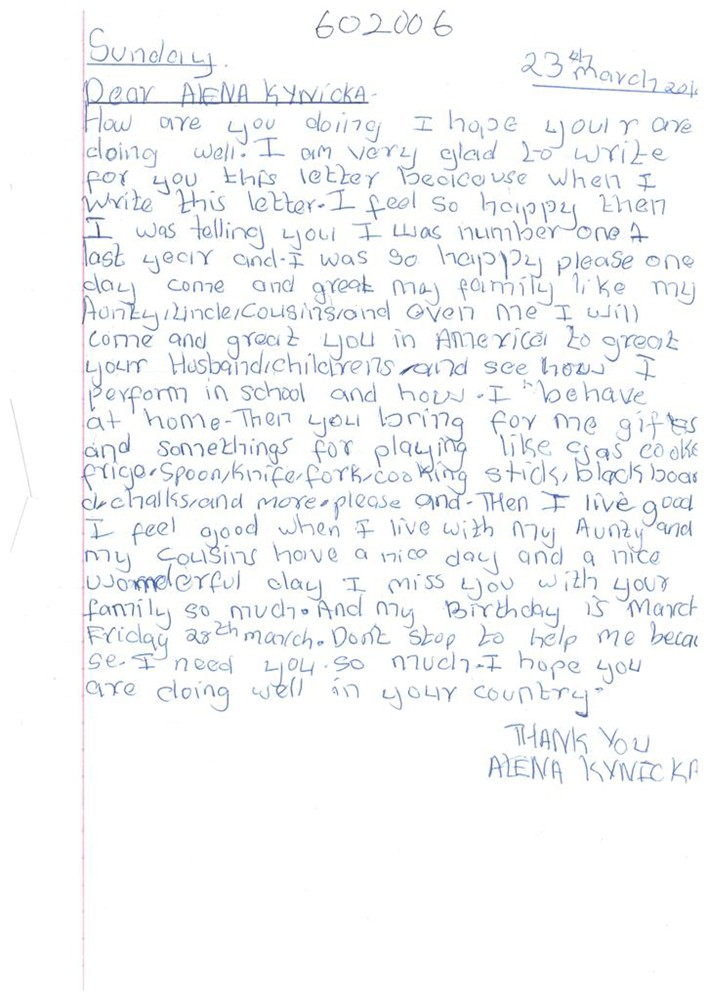 602006
Sunday.
23th March 20
Dear ALENA KYNICKA.
How are you doiing I hope youl r are
doing well. I am very glad to write
for you this letter bealcause when I
write this letter. I feel so haippy then
I was telling youl I was number one 1
last yeair and. I was so happy please one
day come and great may family like my
Aunty, Uncle, cousins, and even me I will
come and great you in America to great
your Husband, childrens, and see how I
perform in school and how. I behave
at home. Then you bring for me giftes
and somethings for playing like Gas cooke
frige, Spoon, knife, fork, cooking stick, black boar
d, chalks, and more, please and. Then I live good
I feel good when I live with my Aunty and
my cousins have a nice day and a nice
wornderful day I miss you with your
family so much. And my Birthday is March
Friday 28th march. Don't stop to help me becau
se. I need you. so much. I hope you
are doing well in your country.
THANK YOU
ALENA KYNICKA